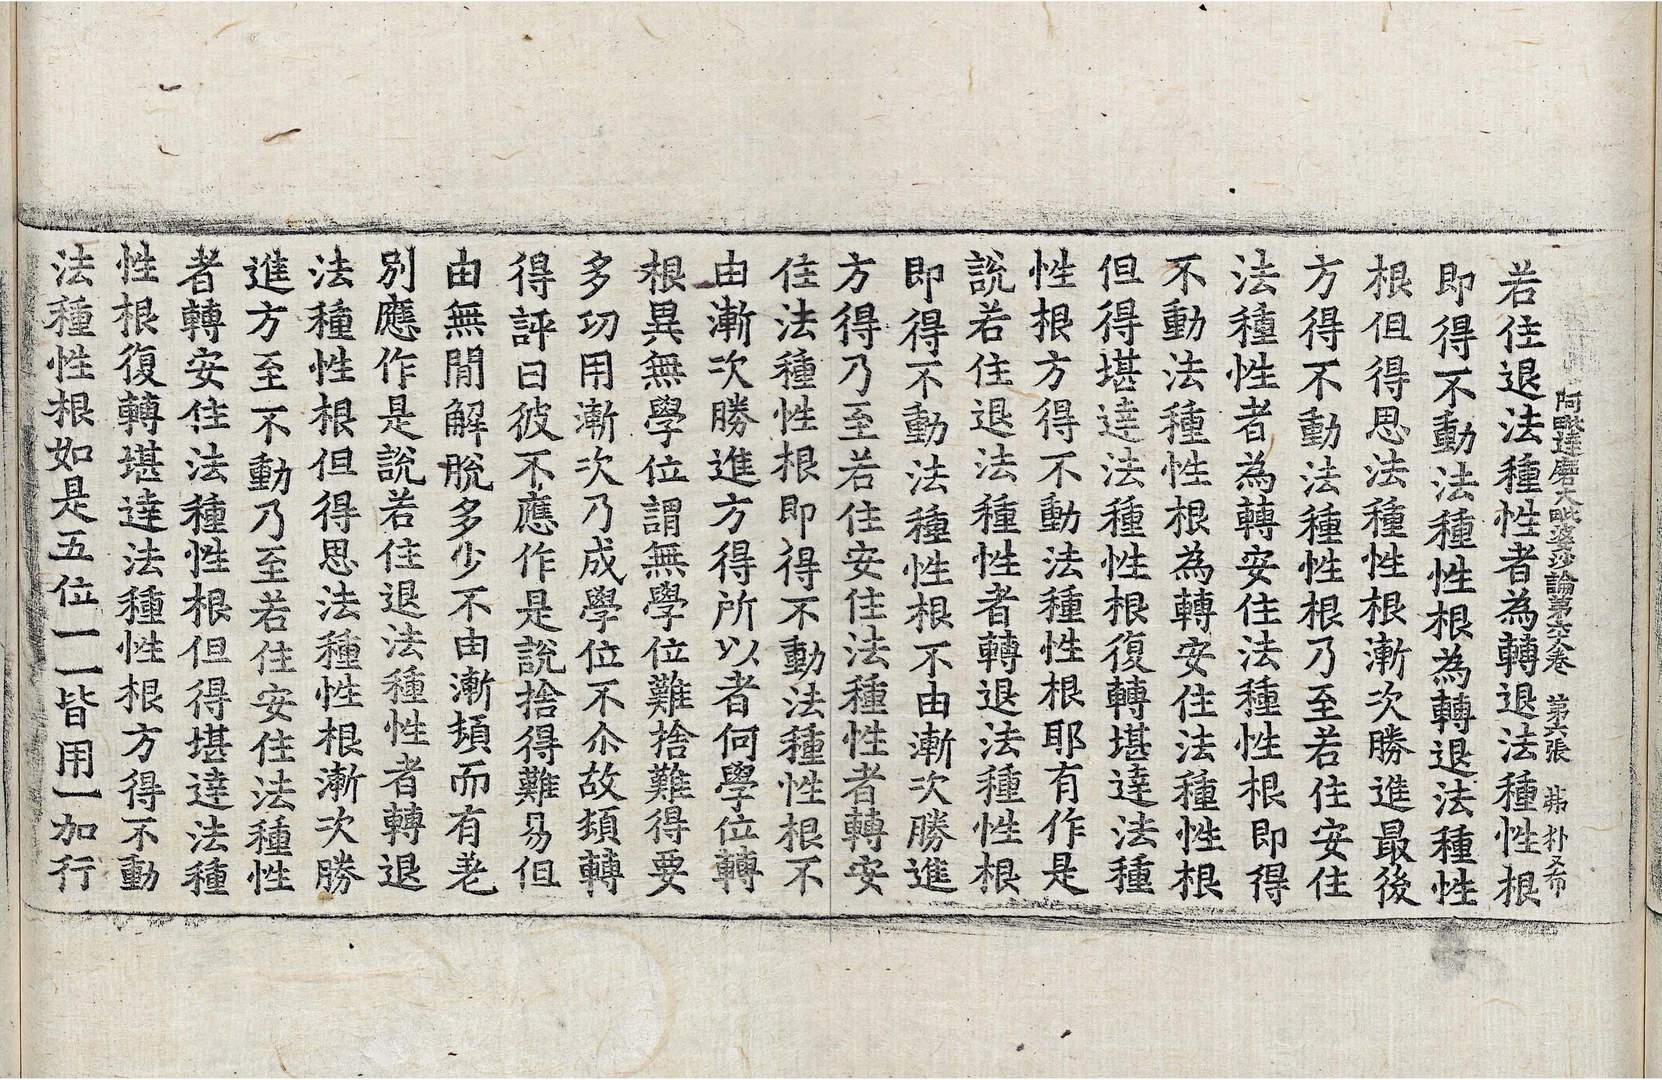 阿毗達磨大毗婆沙論第六十八卷 第 張 朴又布
若住退法種性者為轉退法種性根
即得不動法種性根為轉退法種性
根但得思法種性根漸次勝進最後
方得不動法種性根乃至若住安住
法種性者為轉安住法種性根即得
不動法種性根為轉安住法種性根
但得堪達法種性根復轉堪達法種
性根方得不動法種性根耶有作是
說若住退法種性者轉退法種性根
即得不動法種性根不由漸次勝進
方得乃至若住安住法種性者轉安
住法種性根即得不動法種性根不
由漸次勝進方得所以者何學位轉
根異無學位謂無學位難捨難得要
多功用漸次乃成學位不尒故頓轉
得評曰彼不應作是說捨得難易但
由無閒解脫多少不由漸頓而有差
別應作是說若住退法種性者轉退
法種性根但得思法種性根漸次勝
進方至不動乃至若住安住法種性
者轉安住法種性根但得堪達法種
性根復轉堪達法種性根方得不動
法種性根如是五位一一皆用一加行